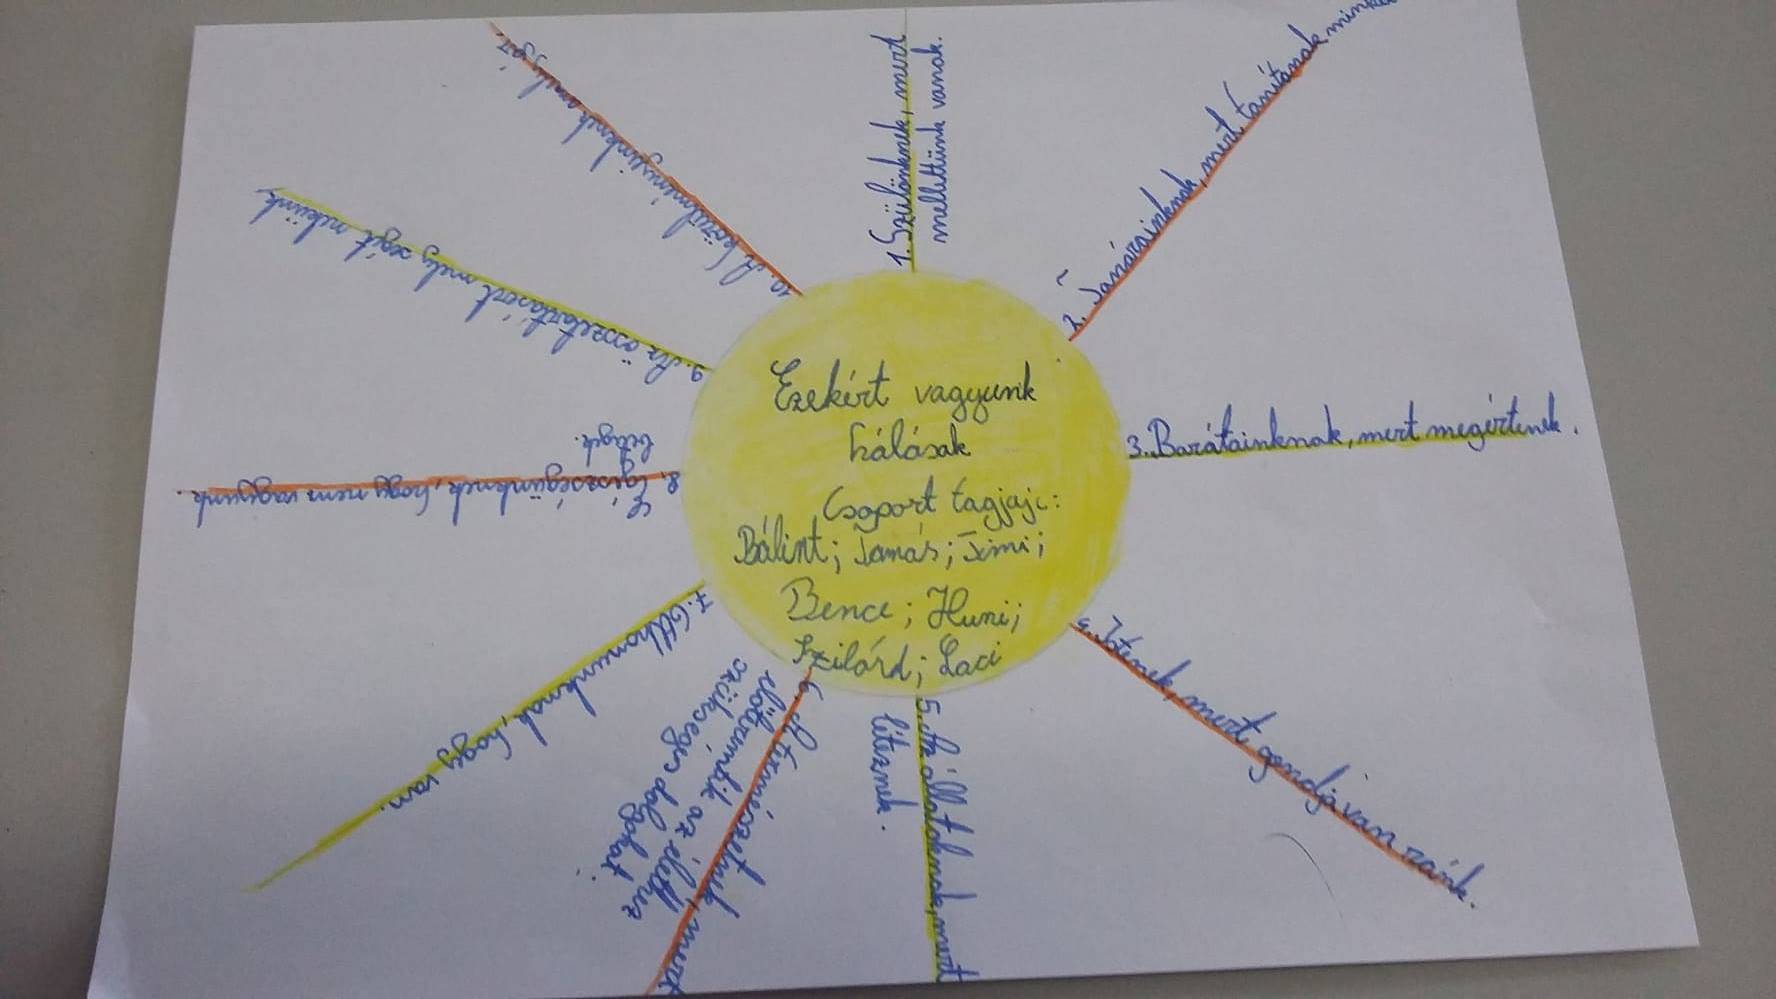 Ezekért vagyunk
hálásak
Csoport tagjai:
Bálint; Tamás; Timi;
Bence; Huni;
Szilárd; Laci
1. Szülőinknek, mert
mellettünk vanak.
2. Tanárainknak, mert tanítanak minket
3. Barátainknak, mert megértenek.
Istenek, mert gondja van ránk.
5. Az állatoknak, mert
léteznek.
6. A természetnek, mert
előteremtik az élethez
szükséges dolgokat.
7. Otthonunknak, hogy van.
8. Egészségünknek, hogy nem vagyunk
betegek.
9. Az összetartásért mely segít nekünk,
10. A körülményeinknek, amely